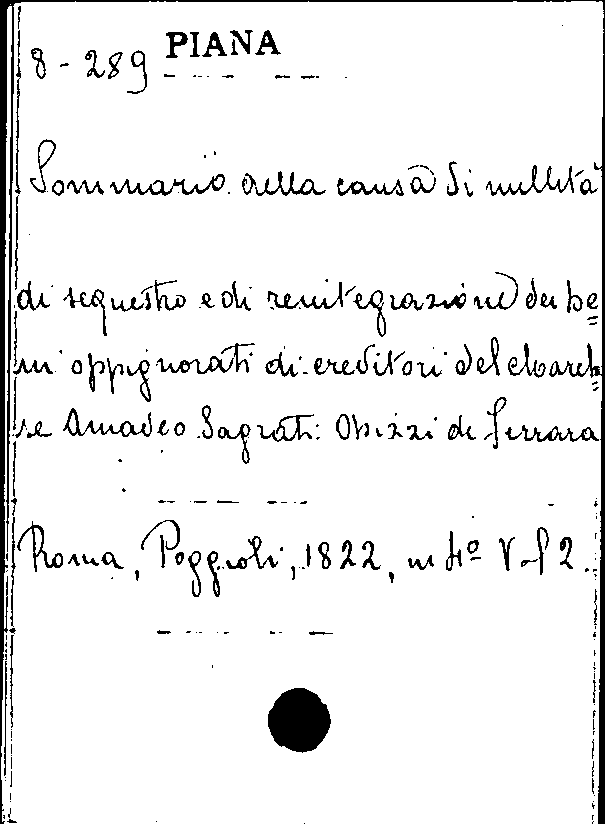 8 - 289 PIANA
Sommario della causa di nullità
di sequestro e di reintegrazione dei be=
ni oppignorati di creditori del March=
se Amadeo Sagrati: Obizzi di Ferrara
Roma, Poggioli, 1822, in 4º V-f 2.